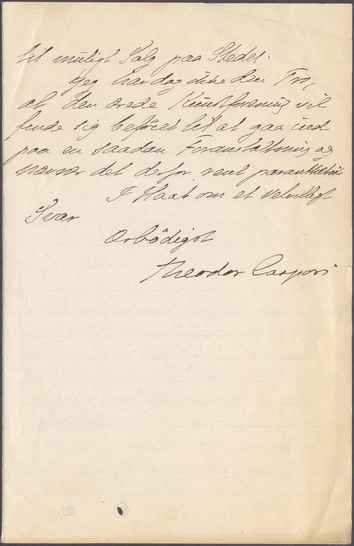 til muligt Salg paa Stedet.
Jeg har dog ikke den Tro,
at den ærede Kunstforening vil
finde sig beføiet til at gaa ind
paa en saadan Foranstaltning og
nævner det derfor rent parenthetisk
I Haab om et velvilligt
Svar
Ærbödigst
Theodor Caspari